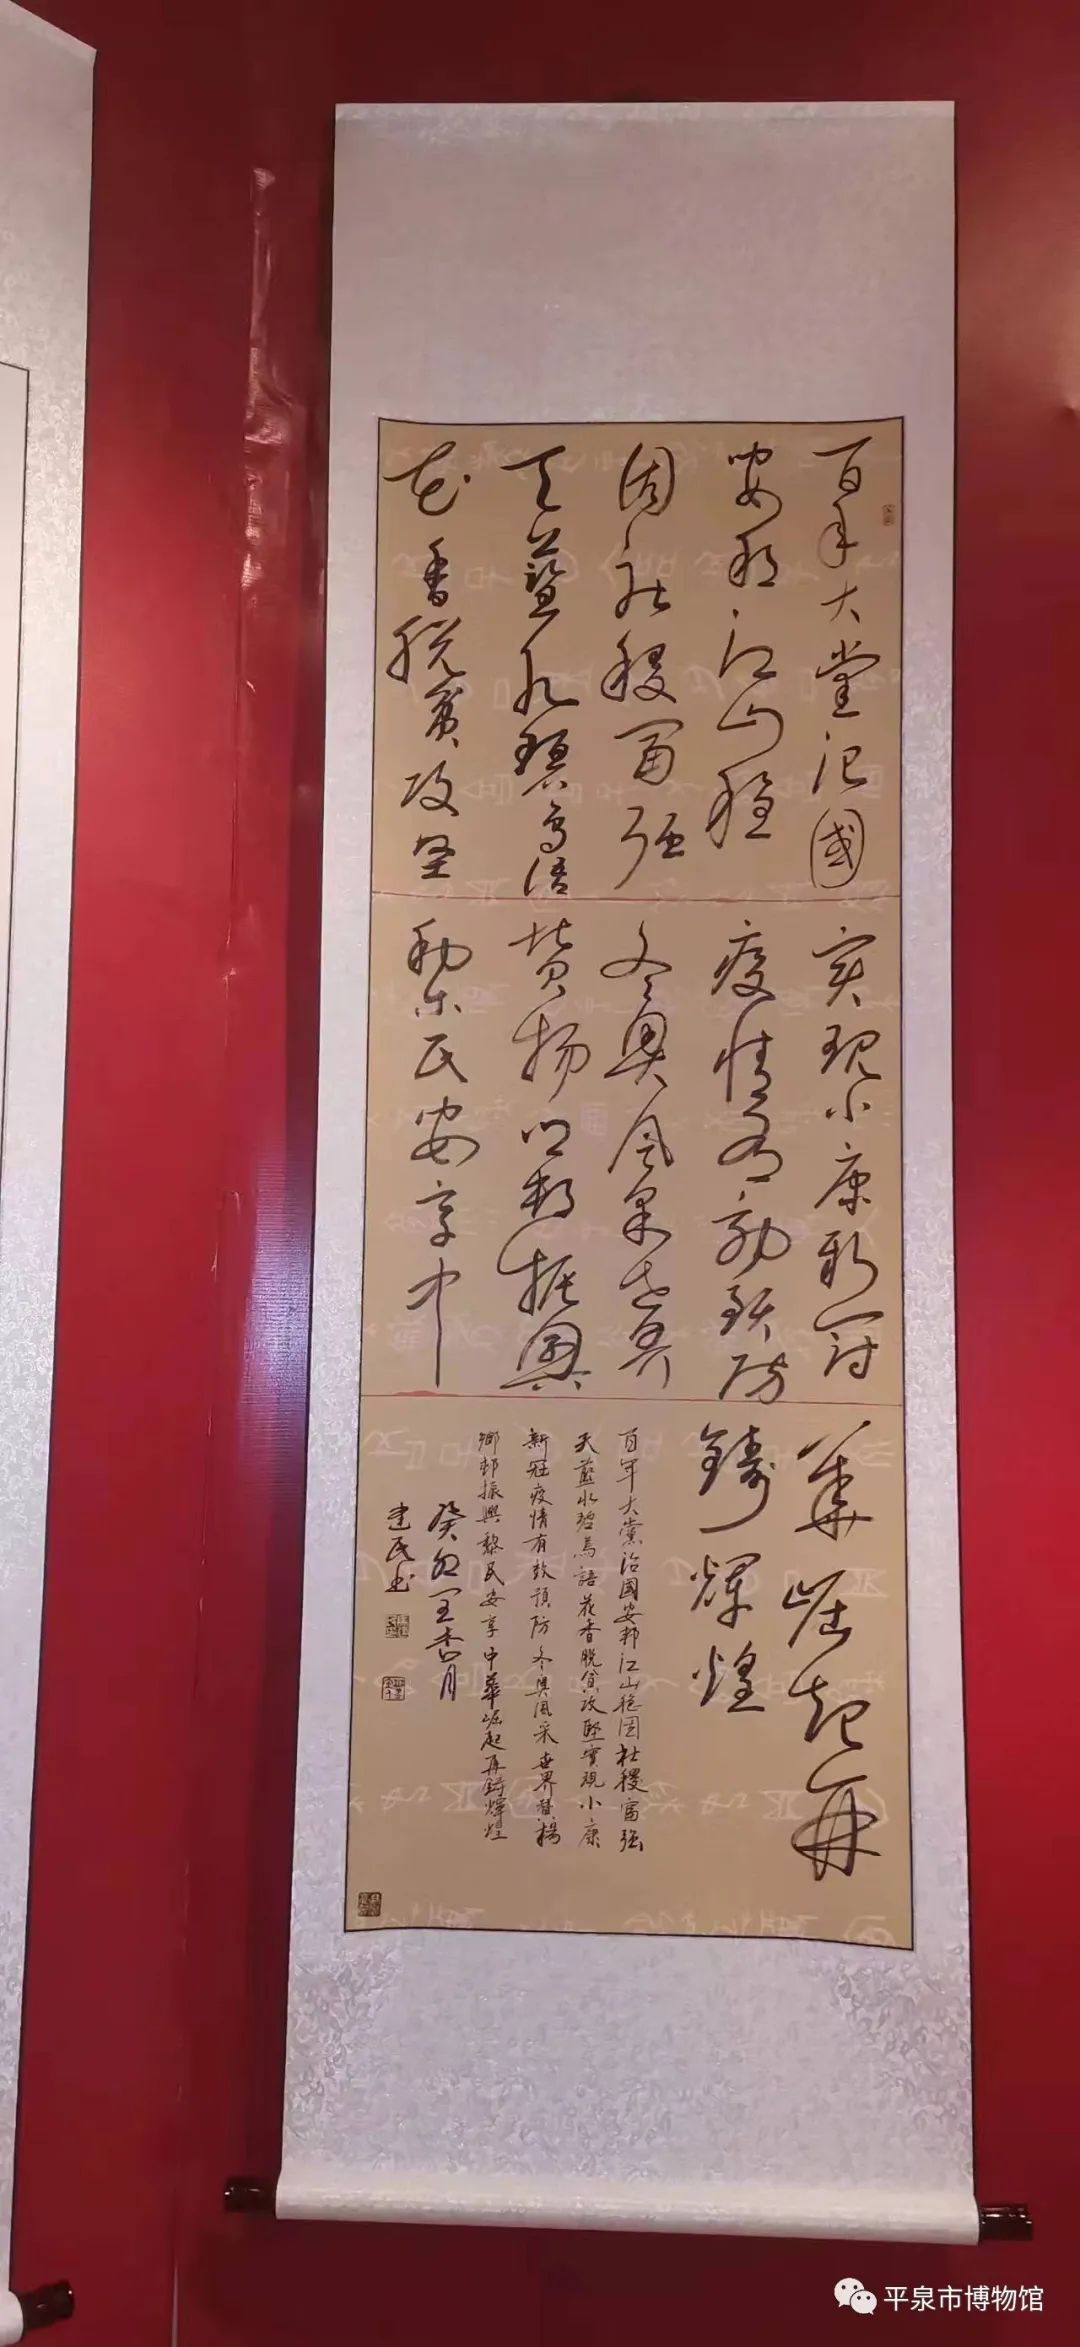 百年大黨治國
安邦江山穩
固社稷富强
天藍水碧鳥語
花香脱貧攻坚
实現小康新冠
疫情有効預防
冬奥风采世界
赞扬乡村振興
黎民安享中
華崛起再
鑄輝煌
百年大黨治國安邦江山穩固社稷富强
天藍水碧鳥語花香脱貧攻堅實現小康
新冠疫情有效預防冬奥風采世界赞揚
鄉邨振興黎民安享中華崛起再鑄輝煌
癸卯年杏月
建民书
平泉市博物馆